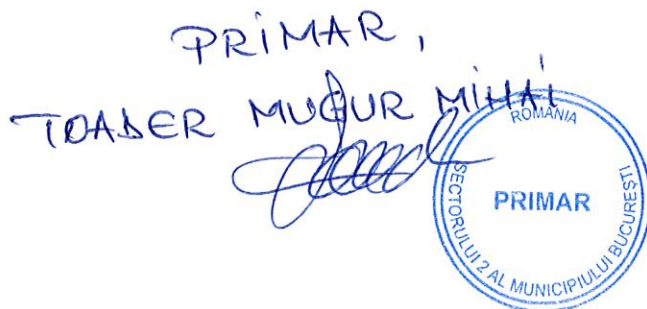 PRIMAR,
TOADER MUGUR MIHAI
ROMÂNIA
SECTORULUI 2 AL MUNICIPIULUI BUCUREȘTI
PRIMAR